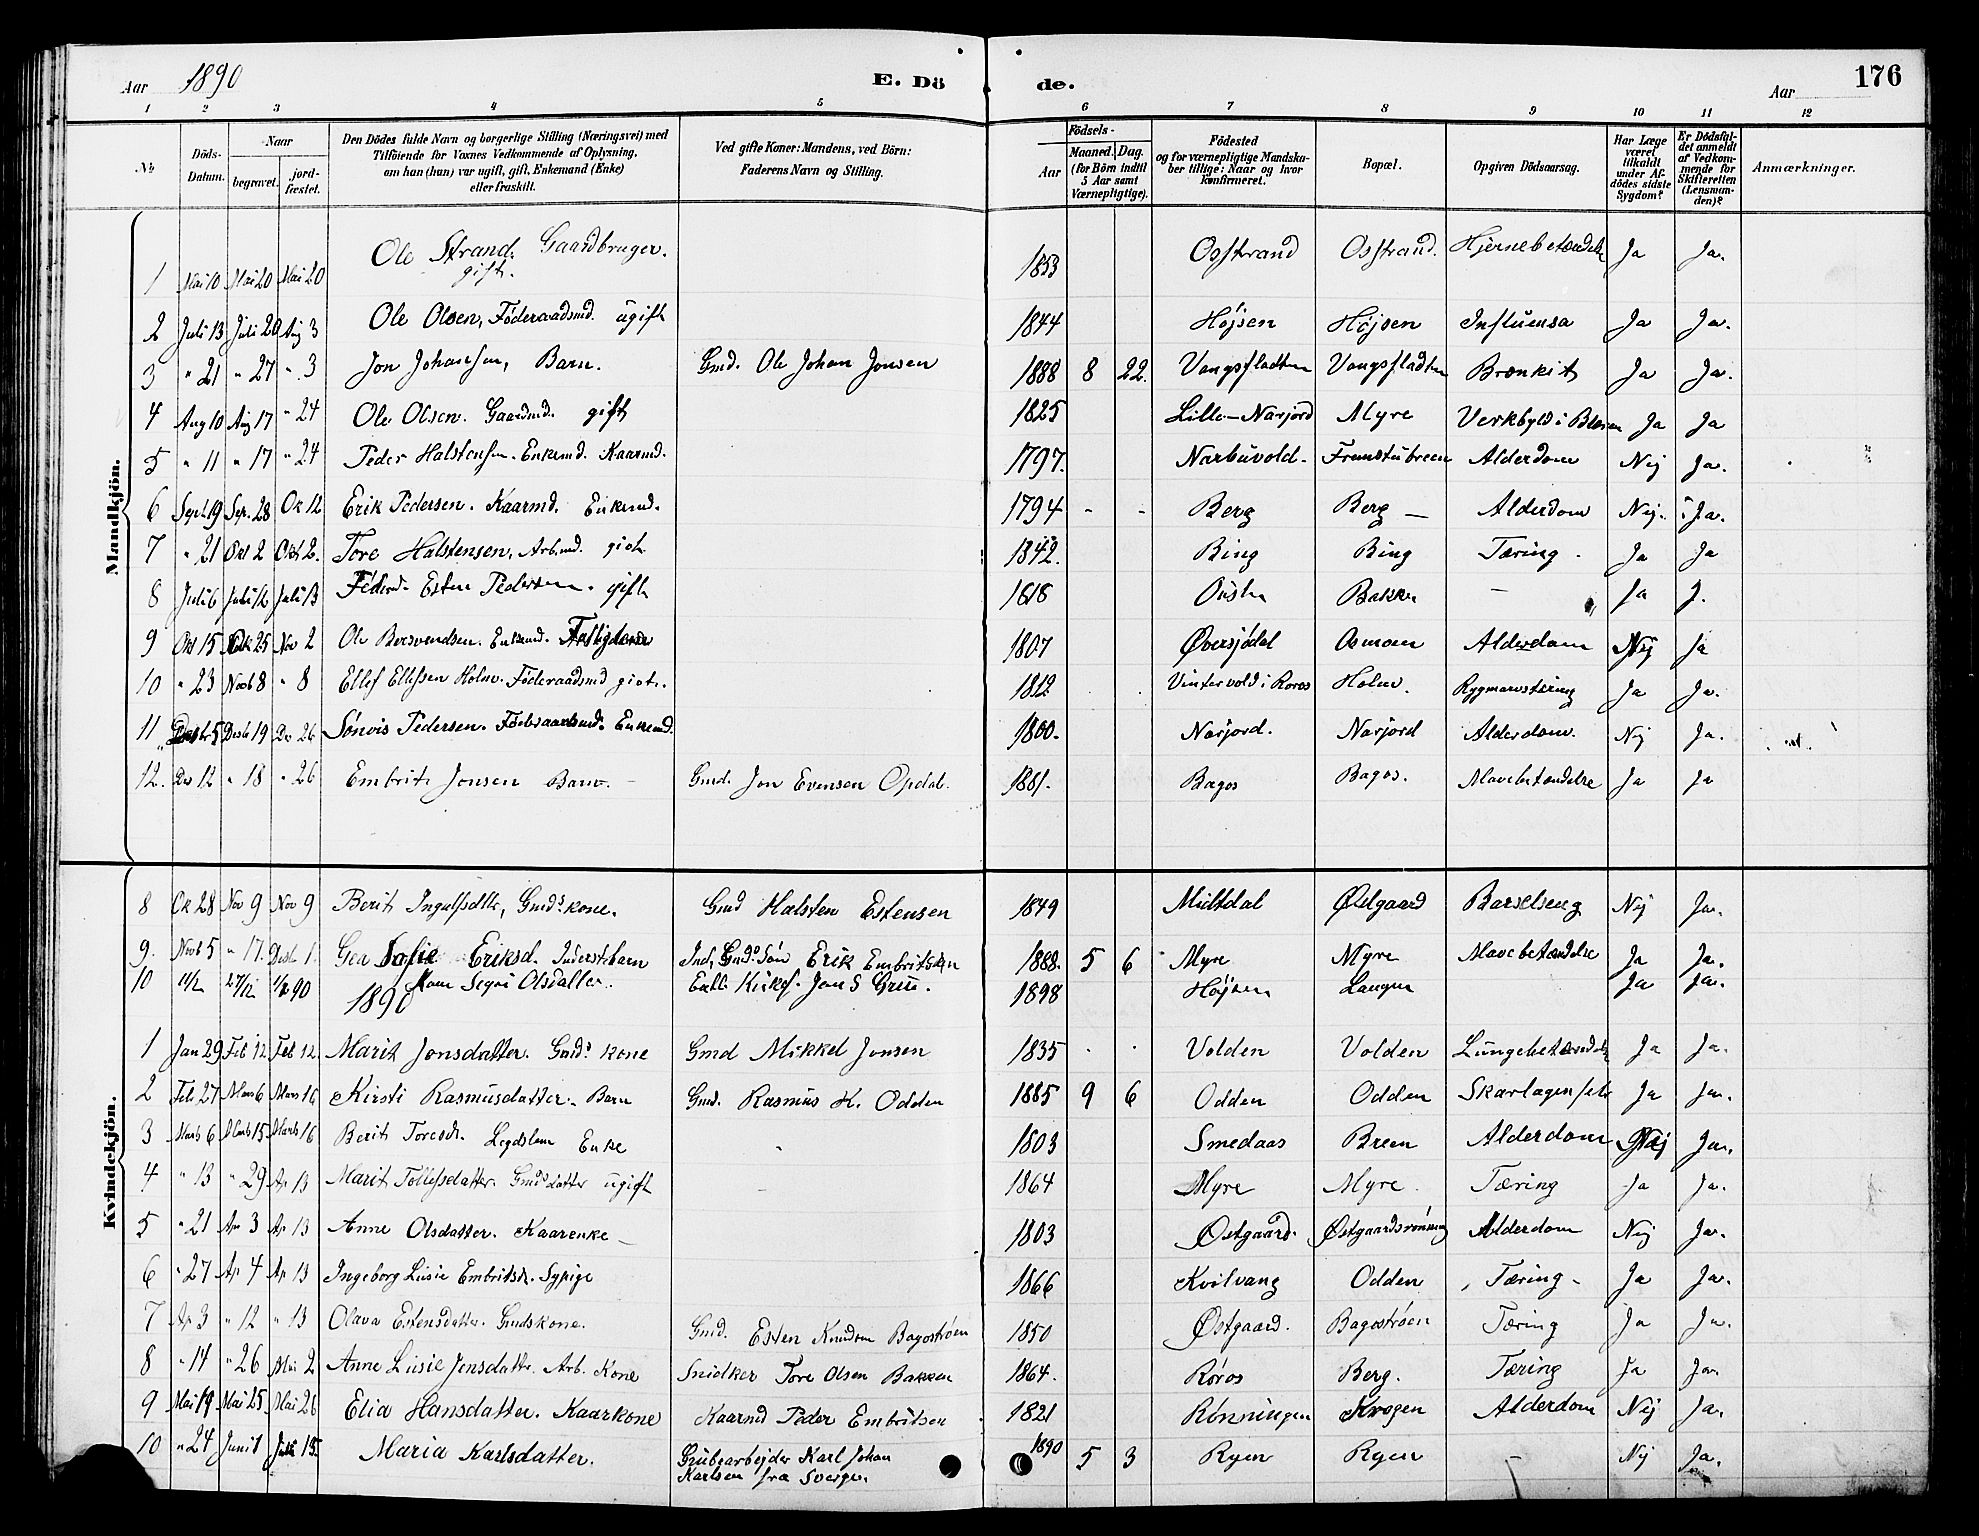 Aar 1890
E. Dö
de.
Aar
176
1 2 3 4 5 6 7 8 9 10 11 12
No
Döds-Datum.
Naar
begravet.
jord-fæstet.
Den Dödes fulde Navn og borgerlige Stilling (Næringsvei) med
Tilföiende for Voxnes Vedkommende af Oplysning,
om han (hun) var ugift, gift, Enkemand (Enke)
eller fraskilt.
Ved gifte Koner: Mandens, ved Börn:
Faderens Navn og Stilling.
Födsels-
Aar
Maaned. Dag.
(for Börn indtil
5 Aar samt
Værnepligtige).
Födested
og for værnepligtige Mandska-
ber tillige: Naar og hvor
Konfirmeret.
Bopæl.
Opgiven Dödsaarsag.
Har Læge
været
tilkaldt
under Af-
dödes sidste
Sygdom?
Er Dödsfal-
det anmeldt
af Vedkom-
mende for
Skifteretten
(Lensman-
den)?
Anmærkninger.
Mandkjön.
1 Mai 10 Mai 20 Mai 20 Ole Strand. Gaardbruger. gift. 1853 Osstrand Osstrand. Hjernebetændelse Ja Ja.
2 Juli 13 Juli 20 Aug 3 Ole Olsen, Föderaadsmd. ugift 1844 Höjsen Höjsen Influensa Ja Ja.
3 " 21 " 27 " 3 Jon Johansen, Barn. Gmd. Ole Johan Jonsen 1888 8 22. Vangsfladten Vangsfladten Bronkit Ja Ja.
4 Aug 10 Aug 17 " 24 Ole Olsen. Gaardmd. gift 1825 Lille-Narjord Myre Verkbyld i Ja Ja
5 " 11 " 17 " 24 Peder Halstensen. Enkemd. Kaarmd. 1797. Narbuvold. Alderdom Nej Ja.
6 Sept 19 Sep. 28 Ok 12 Erik Pedersen. Kaarmd. Enkemd. 1794 - - Berg Berg — Alderdom Nej. Ja.
7 " 21 Okt 2 Okt 2. Tore Halstensen, Arb.md. gift 1842. Bing Bing Tæring. Ja Ja
8 Juli 6 Juli 12 Juli 13 Esten Pedersen. gift 1818 Bakken — Ja J.
9 Okt 15 Okt 25 Nov 2 Ole Bersvendsen. Enkemd. 1807 Øversjødal Osmoen Alderdom Nej Ja
10 " 23 Novb 8 " 8 Ellef Ellefsen Holm. Föderaadsmd gift. 1812 Vintervold i Roros Holm. Rygmarvstæring Ja Ja.
11 5 Desb 19 Des 26 Sönvis Pedersen. Föderaadsmd. Enkemd. 1800. Narjord. Narjord Alderdom. Nej Ja.
12. Des 12 " 18 " 26 Embrit Jonsen Barn. — Gmd. Jon Evensen Opdal. 1881. Bagos Bagos. Mavebetændelse Ja Ja
Kvindekjön.
8 Ok 28 Nov 9 Nov 9 Berit Ingulfsdtr, Gmds kone. Gmd Halsten Estensen 1849 Midtdal Østgaard Barselseng Nej Ja.
9. Novb 5 " 17. Desb 1. Gea Sofie Eriksd. Inderstbarn Ind, Gmds Sön Erik Embritsen 1888. 5 6 Myre Myre Mavebetændelse Ja Ja.
10 27/12 Kone Sigri Olsdatter. Kirkes. Jon S Green. 1898 Höjsen Langen Ja Ja.
1890
1 Jan 29 Feb 12 Feb 12 Marit Jonsdatter. Gmds kone Gmd Mikkel Jonsen 1835 Volden Volden Lungebetændelse Ja Ja.
2 Feb 27 Mars 6 Mars 16 Kirsti Rasmusdatter. Barn Gmd. Rasmus K. Odden 1885 9 6 Odden Odden Skarlagensfeber Ja Ja.
3 Marts 6 Marts 15 Marts 16 Berit Toresd. Legdslem Enke 1803 Smedaas Breen Alderdom Nej Ja.
4 " 13 " 29 Ap 13 Marit Tollefsdatter. Gmdsdatter ugift 1864 Myre Myre Tæring Ja Ja.
5 " 21 Ap 3 Ap 13 Anne Olsdatter. Kaarenke — 1803 Østgaard. Østgaardsrønning Alderdom Nej Ja.
6 " 27 Ap 4 Ap 13 Ingeborg Lusie Embritsd. Sypige 1866 Kvilvang Odden Tæring - Ja Ja.
7 Ap 3 " 12 " 13 Olava Estensdatter. Gmdskone. Gmd. Esten Knudsen Bagostrøen 1850 Østgaard. Bagostrøen Tæring Ja Ja.
8 " 14 " 26 Mai 2 Anne Lusie Jensdatr. Arb. Kone Snidker Tore Olsen Bakken 1864. Røros Berg. Tæring Ja Ja.
9 Mai 19 Mai 25 Mai 26 Elia Hansdatter. Kaarkone Kaarmd Peder Embritsen 1821 Rønningen Krogen Alderdom Nej Ja.
10 " 24 Juni 1 Juli 15 Maria Karlsdatter. Grubearbejder Karl Johan
Karlsen fra Sverge. 1890 5 3 Ryen Ryen - Nej Ja.